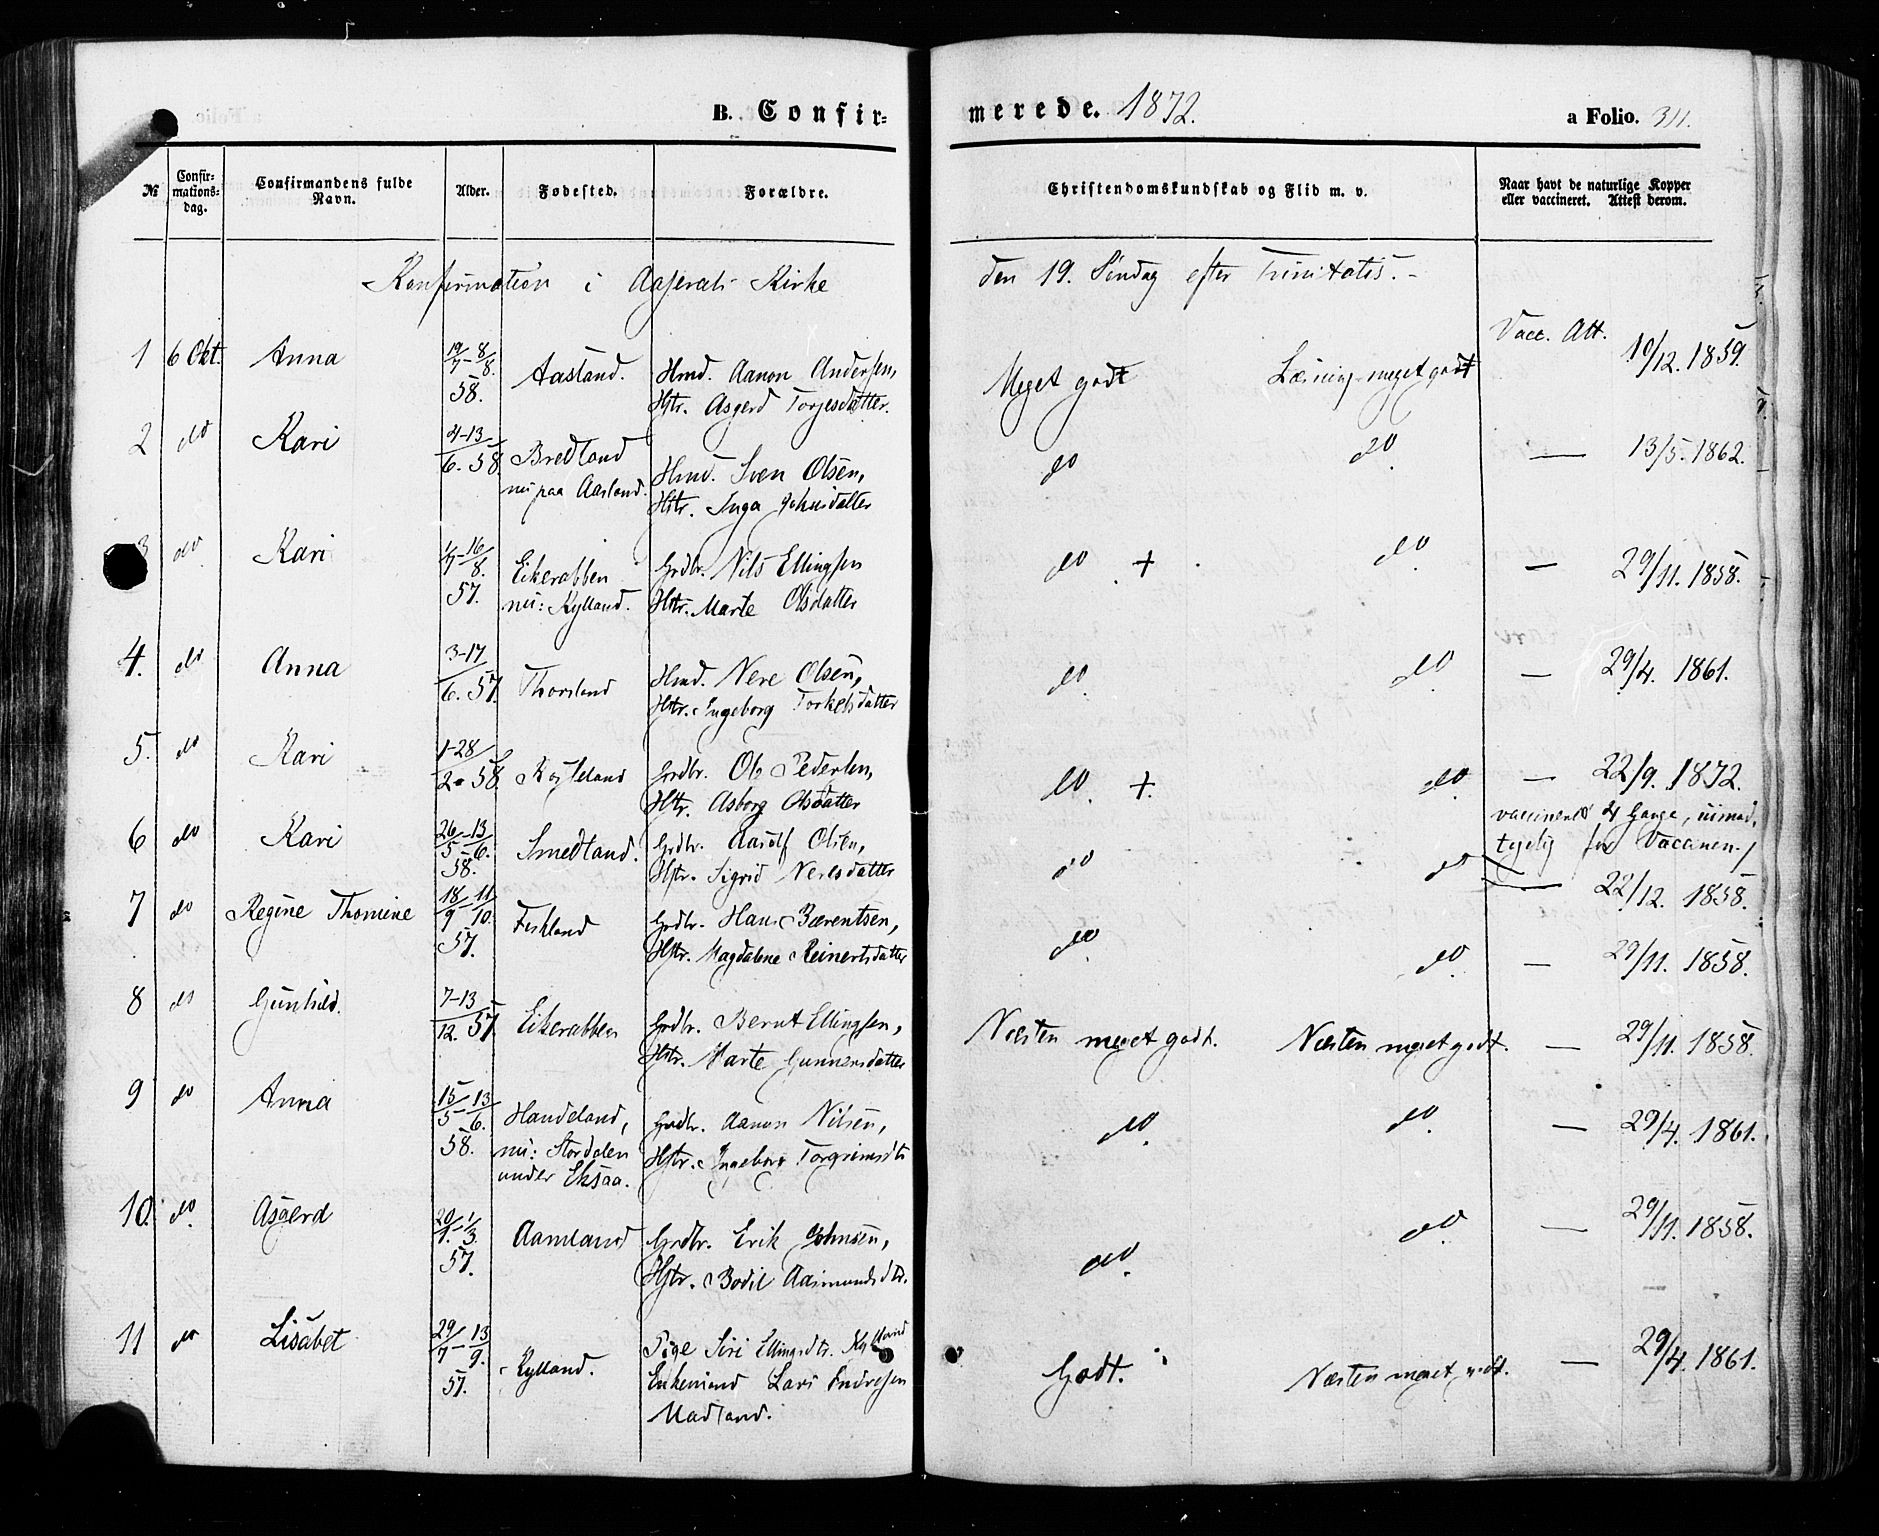 B. Confir-
merede. 1872.
a Folio. 311.
№
Confir-
mations-
dag.
Confirmandens fulde
Navn.
Alder.
Fødested.
Forældre.
Christendomskundskab og Flid m. v.
Naar havt de naturlige Kopper
eller vaccineret. Attest derom.
Konfirmation i Aaserals Kirke
den 19. Søndag efter Trinitatis.
1 6 Okt. Anna 19/7-8/8. 58. Aasland. Hmd. Aanon Andersen, Hstr. Asgerd Torjesdatter. Meget godt Læsning meget godt Vacc. Att. 10/12. 1859.
2 do Kari 4-13/6. 58. Bredland nu paa Aasland. Hmd. Sven Olsen, Hstr. Inga Johnsdatter do do. — 13/5. 1862.
3 do Kari 1/7-16/8. 57. Eikerabben nu: Kylland. Grdbr. Nils Ellingsen Hstr. Marte Olsdatter do + do — 29/11. 1858.
4. do Anna 3-17/6. 57. Thorsland Hmd. Nere Olsen, Hstr. Ingeborg Torkelsdatter do. do — 29/4. 1861.
5. do Kari 1-28/2. 58. Røyseland Grdbr. Ole Pedersen, Hstr. Asborg Olsdatter do. + do. — 22/9. 1872.
vaccineret 4 Gange, uimod-
tagelig for Vaccinen.
6 do Kari 26/5-13/6. 58. Smedland. Grdbr. Aasulf Olsen, Hstr. Sigrid Neresdatter do do — 22/12. 1858.
7 do Regine Thomine 18/9-11/10. 57. Foskland Grdbr. Hans Bærentsen, Hstr. Magdalene Reinertsdatter do do. — 29/11. 1858.
8 do Gunhild. 7-13/12. 57 Eikerabben Grdbr. Bernt Ellingsen, Hstr. Marte Gunnersdatter Næsten meget godt. Næsten meget godt. — 29/11. 1858.
9 do Anna 15/5-13/6. 58. Haudeland, nu: Stordalen under Eksaa. Grdbr. Aanon Nilsen, Hstr. Ingeborg Torgrimsdtr do. do. — 29/4. 1861.
10. do Asgerd 20/1.-1/3. 57. Aamland Grdbr. Erik Johnsen, Hstr. Bodil Aasmundsdtr. do. do. — 29/11. 1858.
11 do Lisabet 29/7-13/9. 57. Kylland. Pige Siri Ellingsdtr. Kylland Enkemand Lars Endresen Madland. Godt. Næsten meget godt. — 29/4. 1861.